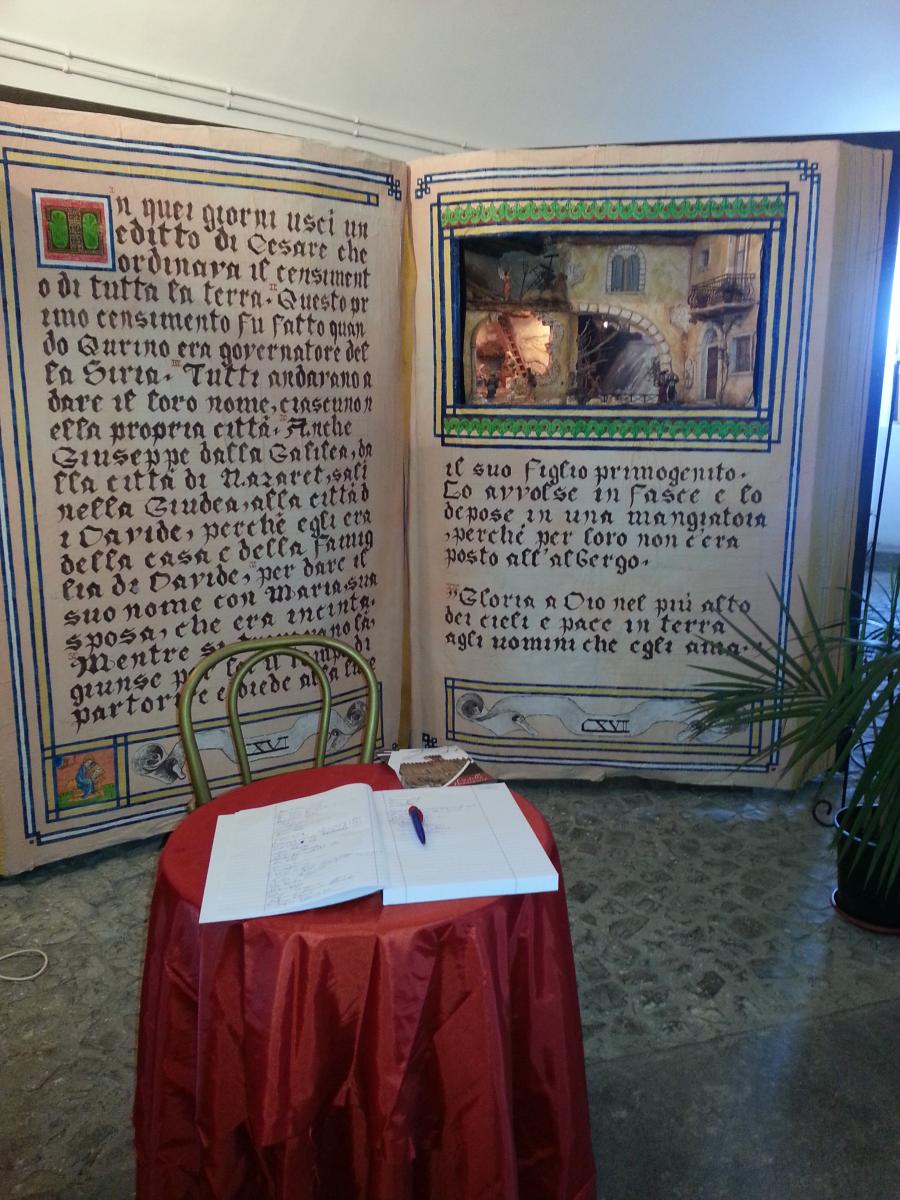 n quei giorni usci un
editto di Cesare che
ordinava il censiment
o di tutta la terra. Questo pr
imo censimento fu fatto quan
do Qurino era governatore del
la Siria. Tutti andarano a
dare il loro nome, ciascuno n
ella propria città. Anche
Giuseppe dalla Galilea, da
lla città di Nazaret, sali
nella Giudea, alla città d
i Davide, perchè egli era
della casa e della famig
lia di Davide, per dare il
suo nome con Maria, sua
sposa, che era incinta.
Mentre si
giunse di
partorire e diede alla luce
XVI
il suo figlio primogenito.
Lo avvolse in fasce e lo
depose in una mangiatoia
, perchè per loro non c'era
posto all'albergo.
"Gloria a Dio nel più alto
dei cieli e pace in terra
agli uomini che egli ama.
CXVII